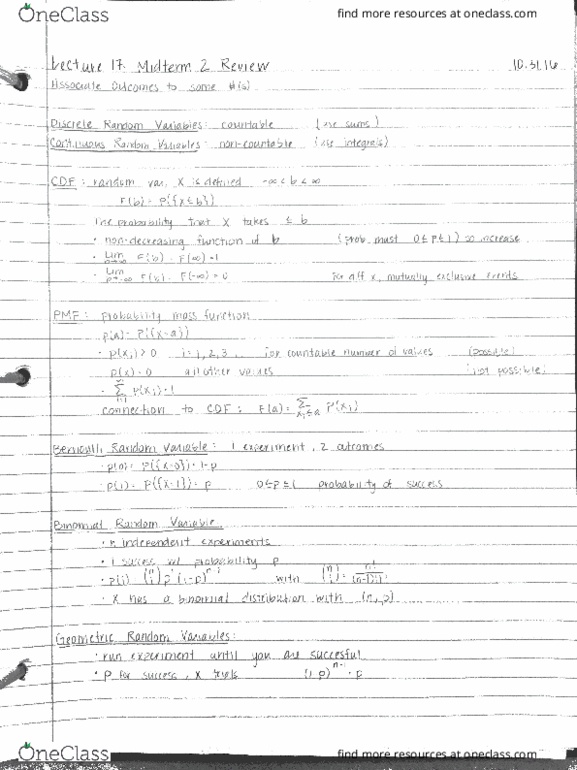 OneClass
find more resources at oneclass.com
Lecture 17: Midterm 2 Review 10.31.16
Associate Outcomes to some #(s)
Discrete Random Variables: countable (use sums)
Continuous Random Variables: non-countable (use integrals)
CDF: random var. X is defined -∞ < b < ∞
F(b) = P({X ≤ b})
The probability that X takes ≤ b
• non-decreasing function of b (prob must 0 ≤ p ≤ 1) so increase
• Lim F(b) = F(∞) = 1
• Lim F(b) = F(-∞) = 0 for diff x, mutually exclusive events
PMF: probability mass function
p(a) = P({X=a})
• p(xi) > 0 i = 1, 2, 3... for countable number of values (possible)
p(x) = 0 all other values (not possible)
• ∑ p(xi) = 1
connection to CDF: F(a) = ∑ xi ≤ a P(xi)
Random Variable: 1 experiment, 2 outcomes
• p(0) = P({X=0}) = 1-p
• p(1) = P({X=1}) = p 0 ≤ p ≤ 1 probability of success
Binomial Random Variable
• n independent experiments
• 1 success w/ probability p
• p(i) = (n i) p^i (1-p)^n-i with (n i) = n!
• X has a binomial distribution with (n, p)
Geometric Random Variables:
• run experiment until you are succesful
• P for success, X trials (1-p)^n-1 · p
OneClass
find more resources at oneclass.com